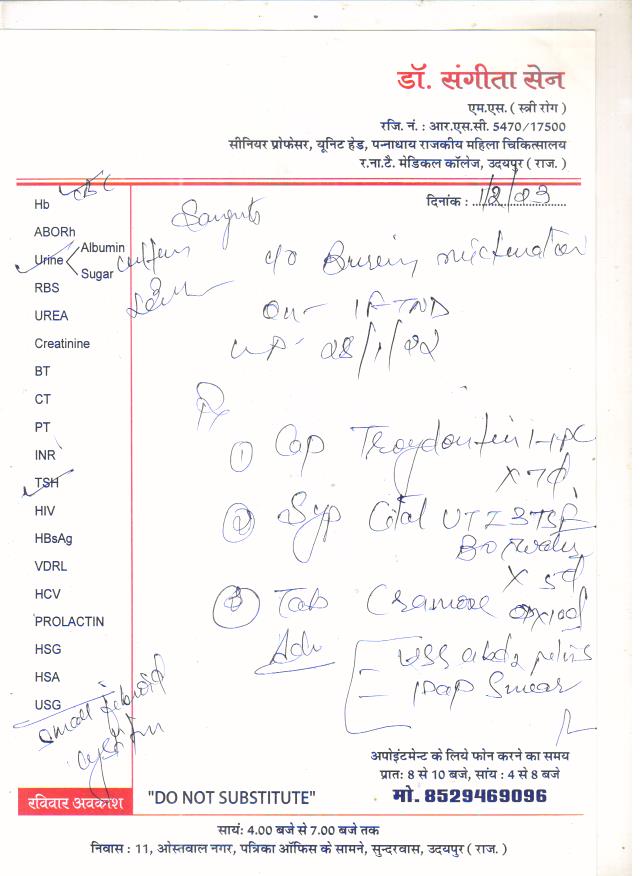 डॉ. संगीता सेन
एम.एस. ( स्त्री रोग )
रजि. नं. : आर.एस.सी. 5470/17500
सीनियर प्रोफेसर, यूनिट हेड, पन्नाधाय राजकीय महिला चिकित्सालय
र.ना.टै. मेडिकल कॉलेज, उदयपुर ( राज. )
दिनांक : 1/2/23
Hb CBC
ABORh
Urine Albumin
Sugar
RBS
UREA
Creatinine
BT
CT
PT
INR
TSH
HIV
HBsAg
VDRL
HCV
PROLACTIN
HSG
HSA
USG
c/o micturation
28/1/22
Rx
① Cap
x 7d
② Syp Cital UTI 3TSF
x 5d
③ Tab
Adv
USS abd & pelvis
Pap Smear
small fibroid
अपोइंटमेन्ट के लिये फोन करने का समय
प्रात: 8 से 10 बजे, सांय : 4 से 8 बजे
मो. 8529469096
रविवार अवकाश
"DO NOT SUBSTITUTE"
सायं: 4.00 बजे से 7.00 बजे तक
निवास : 11, ओस्तवाल नगर, पत्रिका ऑफिस के सामने, सुन्दरवास, उदयपुर ( राज. )